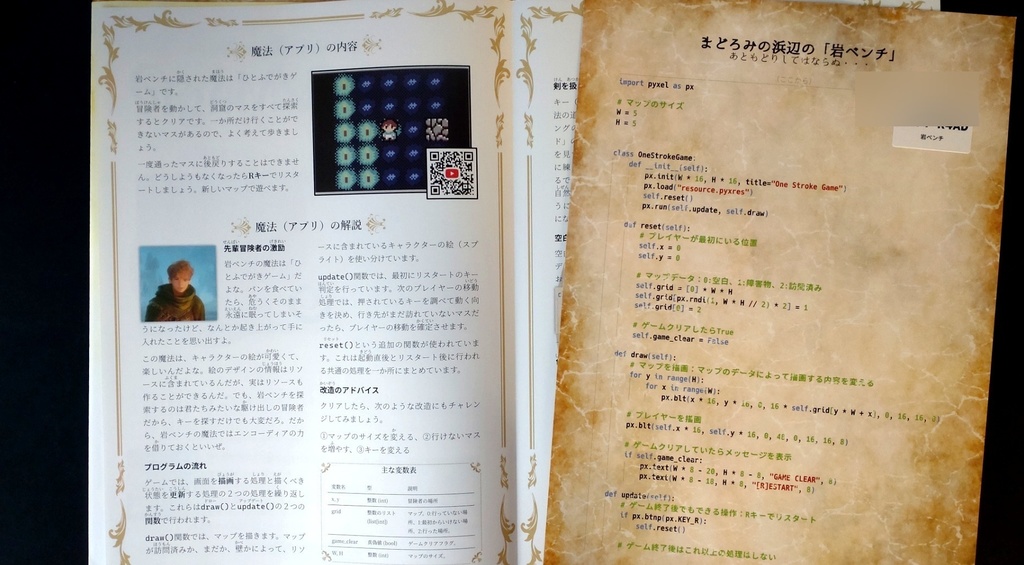 魔法（アプリ）の内容
岩ベンチに隠された魔法は「ひとふでがきゲ
ーム」です。
冒険者を動かして、洞窟のマスをすべて探索
するとクリアです。一か所だけ行くことがで
きないマスがあるので、よく考えて歩きまし
ょう。
一度通ったマスに後戻りすることはできませ
ん。どうしようもなくなったらRキーでリスタ
ートしましょう。新しいマップで遊べます。
魔法（アプリ）の解説
先輩冒険者の激励
岩ベンチの魔法は「ひ
とふでがきゲーム」だ
よな。パンを食べてい
たら、危うくそのまま
永遠に眠ってしまいそ
うになったけど、なんとか起き上がって手に
入れたことを思い出すよ。
この魔法は、キャラクターの絵が可愛くて、
楽しいんだよな。絵のデザインの情報はリソ
ースに含まれているんだが、実はリソースも
作ることができるんだ。でも、岩ベンチを探
索するのは君たちみたいな駆け出しの冒険者
だから、キーを探すだけでも大変だろ。だか
ら、岩ベンチの魔法ではエンコーディアの力
を借りておくといいぜ。
プログラムの流れ
ゲームでは、画面を描画する処理と描くべき
状態を更新する処理の２つの処理を繰り返し
ます。これらはdraw()とupdate()の２つの
関数で行われます。
draw()関数では、マップを描きます。マップ
が訪問済みか、まだか、壁かによって、リソ
ースに含まれているキャラクターの絵（スプ
ライト）を使い分けています。
update()関数では、最初にリスタートのキー
判定を行っています。次のプレイヤーの移動
処理では、押されているキーを調べて動く向
きを決め、行き先がまだ訪れていないマスだ
ったら、プレイヤーの移動を確定させます。
reset()という追加の関数が使われていま
す。これは起動直後とリスタート後に行われ
る共通の処理を一か所にまとめています。
改造のアドバイス
クリアしたら、次のような改造にもチャレン
ジしてみましょう。
①マップのサイズを変える、②行けないマス
を増やす、③キーを変える
主な変数表
変数名 型 説明
x, y 整数 (int) 冒険者の場所
grid 整数のリスト マップ。0:行っていない場
(list[int]) 所、1:最初からいけない場
所、2:行った場所。
game_clear 真偽値 (bool) ゲームクリアフラグ。
W, H 整数 (int) マップのサイズ。
剣を扱
まどろみの浜辺の「岩ベンチ」
あともどりしてはならぬ・・・
岩ベンチ
import pyxel as px
# マップのサイズ
W = 5
H = 5
class OneStrokeGame:
def __init__(self):
px.init(W * 16, H * 16, title="One Stroke Game")
px.load("resource.pyxres")
self.reset()
px.run(self.update, self.draw)
def reset(self):
# プレイヤーが最初にいる位置
self.x = 0
self.y = 0
# マップデータ：0:空白、1:障害物、2:訪問済み
self.grid = [0] * W * H
self.grid[px.rndi(1, W * H // 2) * 2] = 1
self.grid[0] = 2
# ゲームクリアしたらTrue
self.game_clear = False
def draw(self):
# マップを描画：マップのデータによって描画する内容を変える
for y in range(H):
for x in range(W):
px.blt(x * 16, y * 16, 0, 16 * self.grid[y * W + x], 0, 16, 16, 0)
# プレイヤーを描画
px.blt(self.x * 16, self.y * 16, 0, 48, 0, 16, 16, 8)
# ゲームクリアしていたらメッセージを表示
if self.game_clear:
px.text(W * 8 - 20, H * 8 - 8, "GAME CLEAR", 8)
px.text(W * 8 - 18, H * 8, "[R]ESTART", 8)
def update(self):
# ゲーム終了後でもできる操作：Rキーでリスタート
if px.btnp(px.KEY_R):
self.reset()
# ゲーム終了後はこれ以上の処理はしない